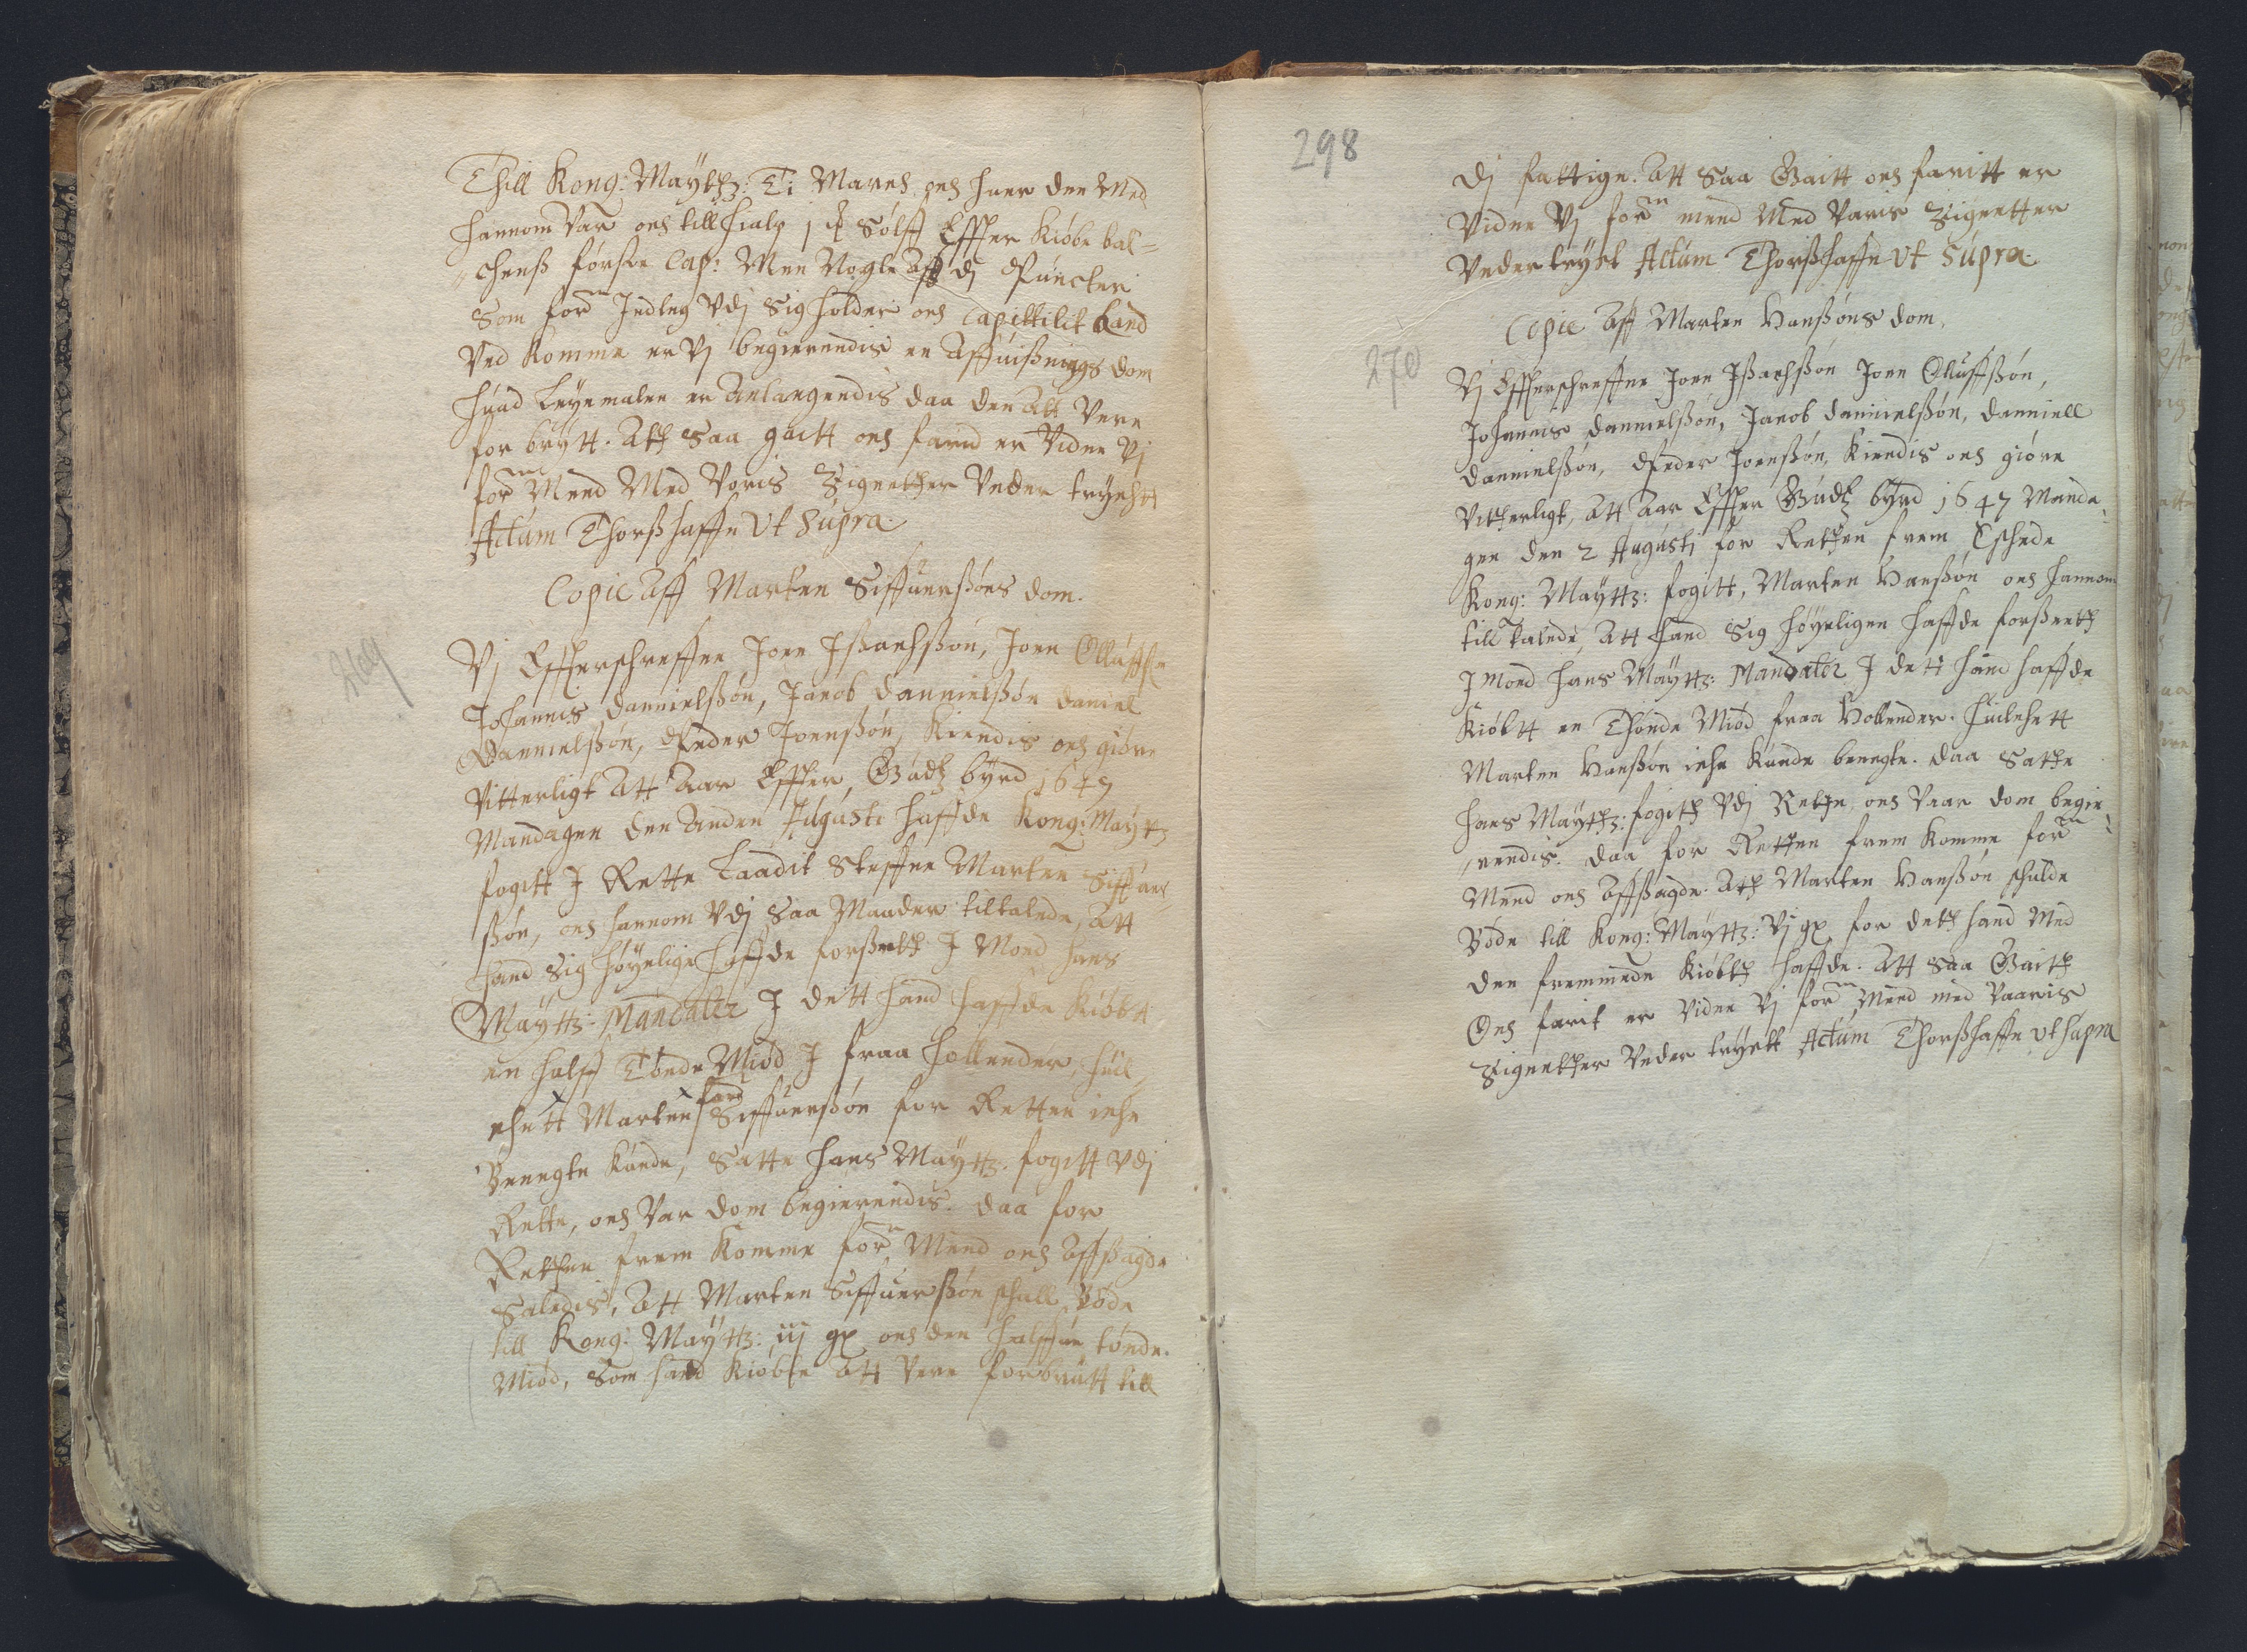 Thill Kong: Maÿttz: Ti March och huer den Med
hannom var och till hialp j ℔ Sølff Effter Kiøbe bal=
chenß første Cap: Men Nogle Aff dj Puncter
Som forⁿ Indleg Vdj Sig holder och Capittilit hand
Ved Komme er Vj begierendis en Affuißnings dom
huad Leyemalen er Anlangendis daa den Att Vere
for brÿtt. Att Saa gaitt och farid er Vider Vj
forⁿ Mend Med Voris Zignetther Neder trÿchtt
Actum Thorßhaffn Vt Supra.
Copie Aff Marten Siffuerßøns dom.
Vj Effterschreffne Joen Jßachßøn, Joen Olluffß
Johannis Dannielßøn, Jacob Dannielßøn Daniel
Dannielßøn, Peder Joenßøn, Kiendis och giøre
Vitterligt Att Aar Effter Gudtz bÿrd 1647
Mandagen den Anden Augusti haffde Kong: Maÿttz
fogitt I Rette Laadit Steffne Marten Siffuer
ßøn, och hannom Vdj Saa Maader tiltalede, Att
hand Sig høyelige haffde forßeett I Moed hans
Maÿttz: Mandater I dett hand haffde Kiøbtt
en halff Tønde Miød I fraa hollender, huil
chett Marten Siffuerßøn for Retten iche
hand
Benegte Kunde, Satte hans Maÿttz. fogitt Vdj
Rette, och Var dom begierendis. daa for
Retthen frem Komme forⁿ Mend och Affßagde
Saledis, Att Marten Siffuerßøn schall Bøde
till Kong: Maÿttz: iij gℓ och den halffue tønde
Miød, Som hand Kiøbte Att Vere forbrutt till
298
dj fattige. Att Saa Gaitt och faritt er
Vider Vj forⁿ mend Med Varis Zignetter
Neder trÿct Actum Thorßhaffn Vt Supra.
Copie Aff Marten Hanßøns dom.
270
Vj Effterschreffne Joen Jßachßøn Joen Olluffßøn,
Johannis Dannielßøn, Jacob Dannielßøn, Danniell
Dannielßøn, Peder Joenßøn, Kiendis och giøre
Vittherligt, Att Aar Effter Gudtz bÿrd 1647 Manda
gen den 2 Augusti for Retthen frem Eschede
Kong: Maÿttz: fogitt, Marten Hanßøn och hannom
till talede, Att hand Sig høyeligen haffde forßeett
I Moed hans Maÿttz: Mandater I dett hand haffde
Kiøbtt en Thønde Miød fraa Hollender. huilchett
Marten Hanßøn iche Kunde benegte. daa Satthe
hans Maÿttz: fogitt Vdj Retthe, och Vaar dom begie
rendis. daa for Retthen frem Komme forⁿ
Mend och Affßagde. Att Marten Hanßøn schulde
Bøde till Kong: Maÿttz: Vj gℓ for dett hand Med
den fremmede Kiøbtt haffde. Att Saa Gaitt
Och farit er Vider Vj forⁿ Mend med Vaaris
Zignetther Neder trÿctt Actum Thorßhaffn Vt Supra